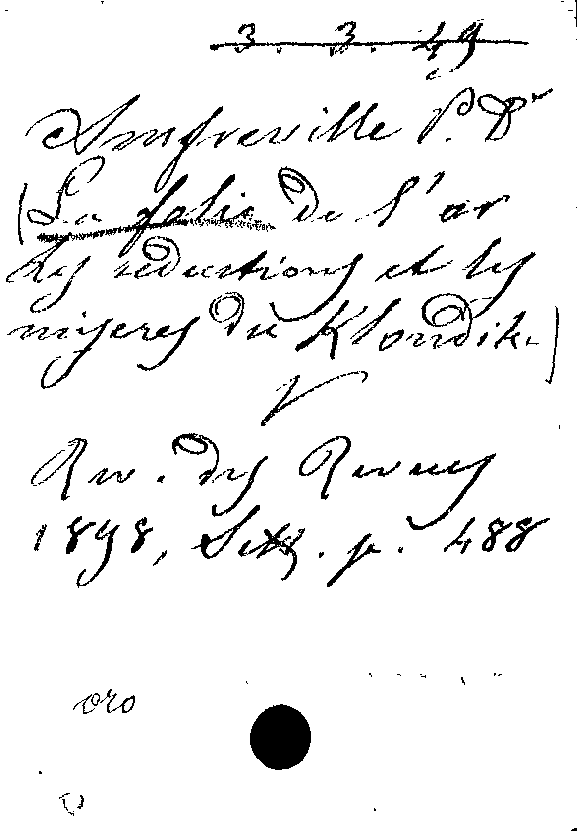 3. 3. 49
Amfreville P. Dr
(La folie de l'or
les séductions et les
misères du Klondike)
V
Rev. des Revues
1898, Sett. p. 488
oro